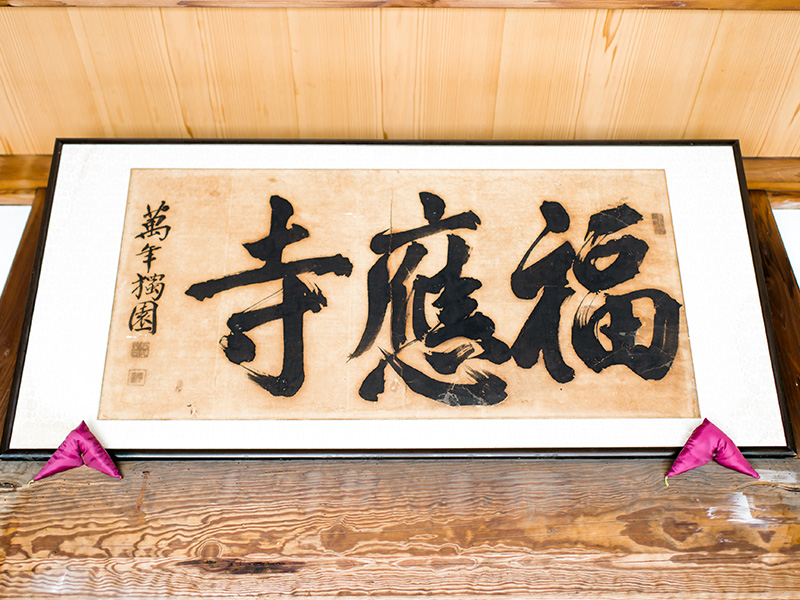 福應寺
萬年獨園